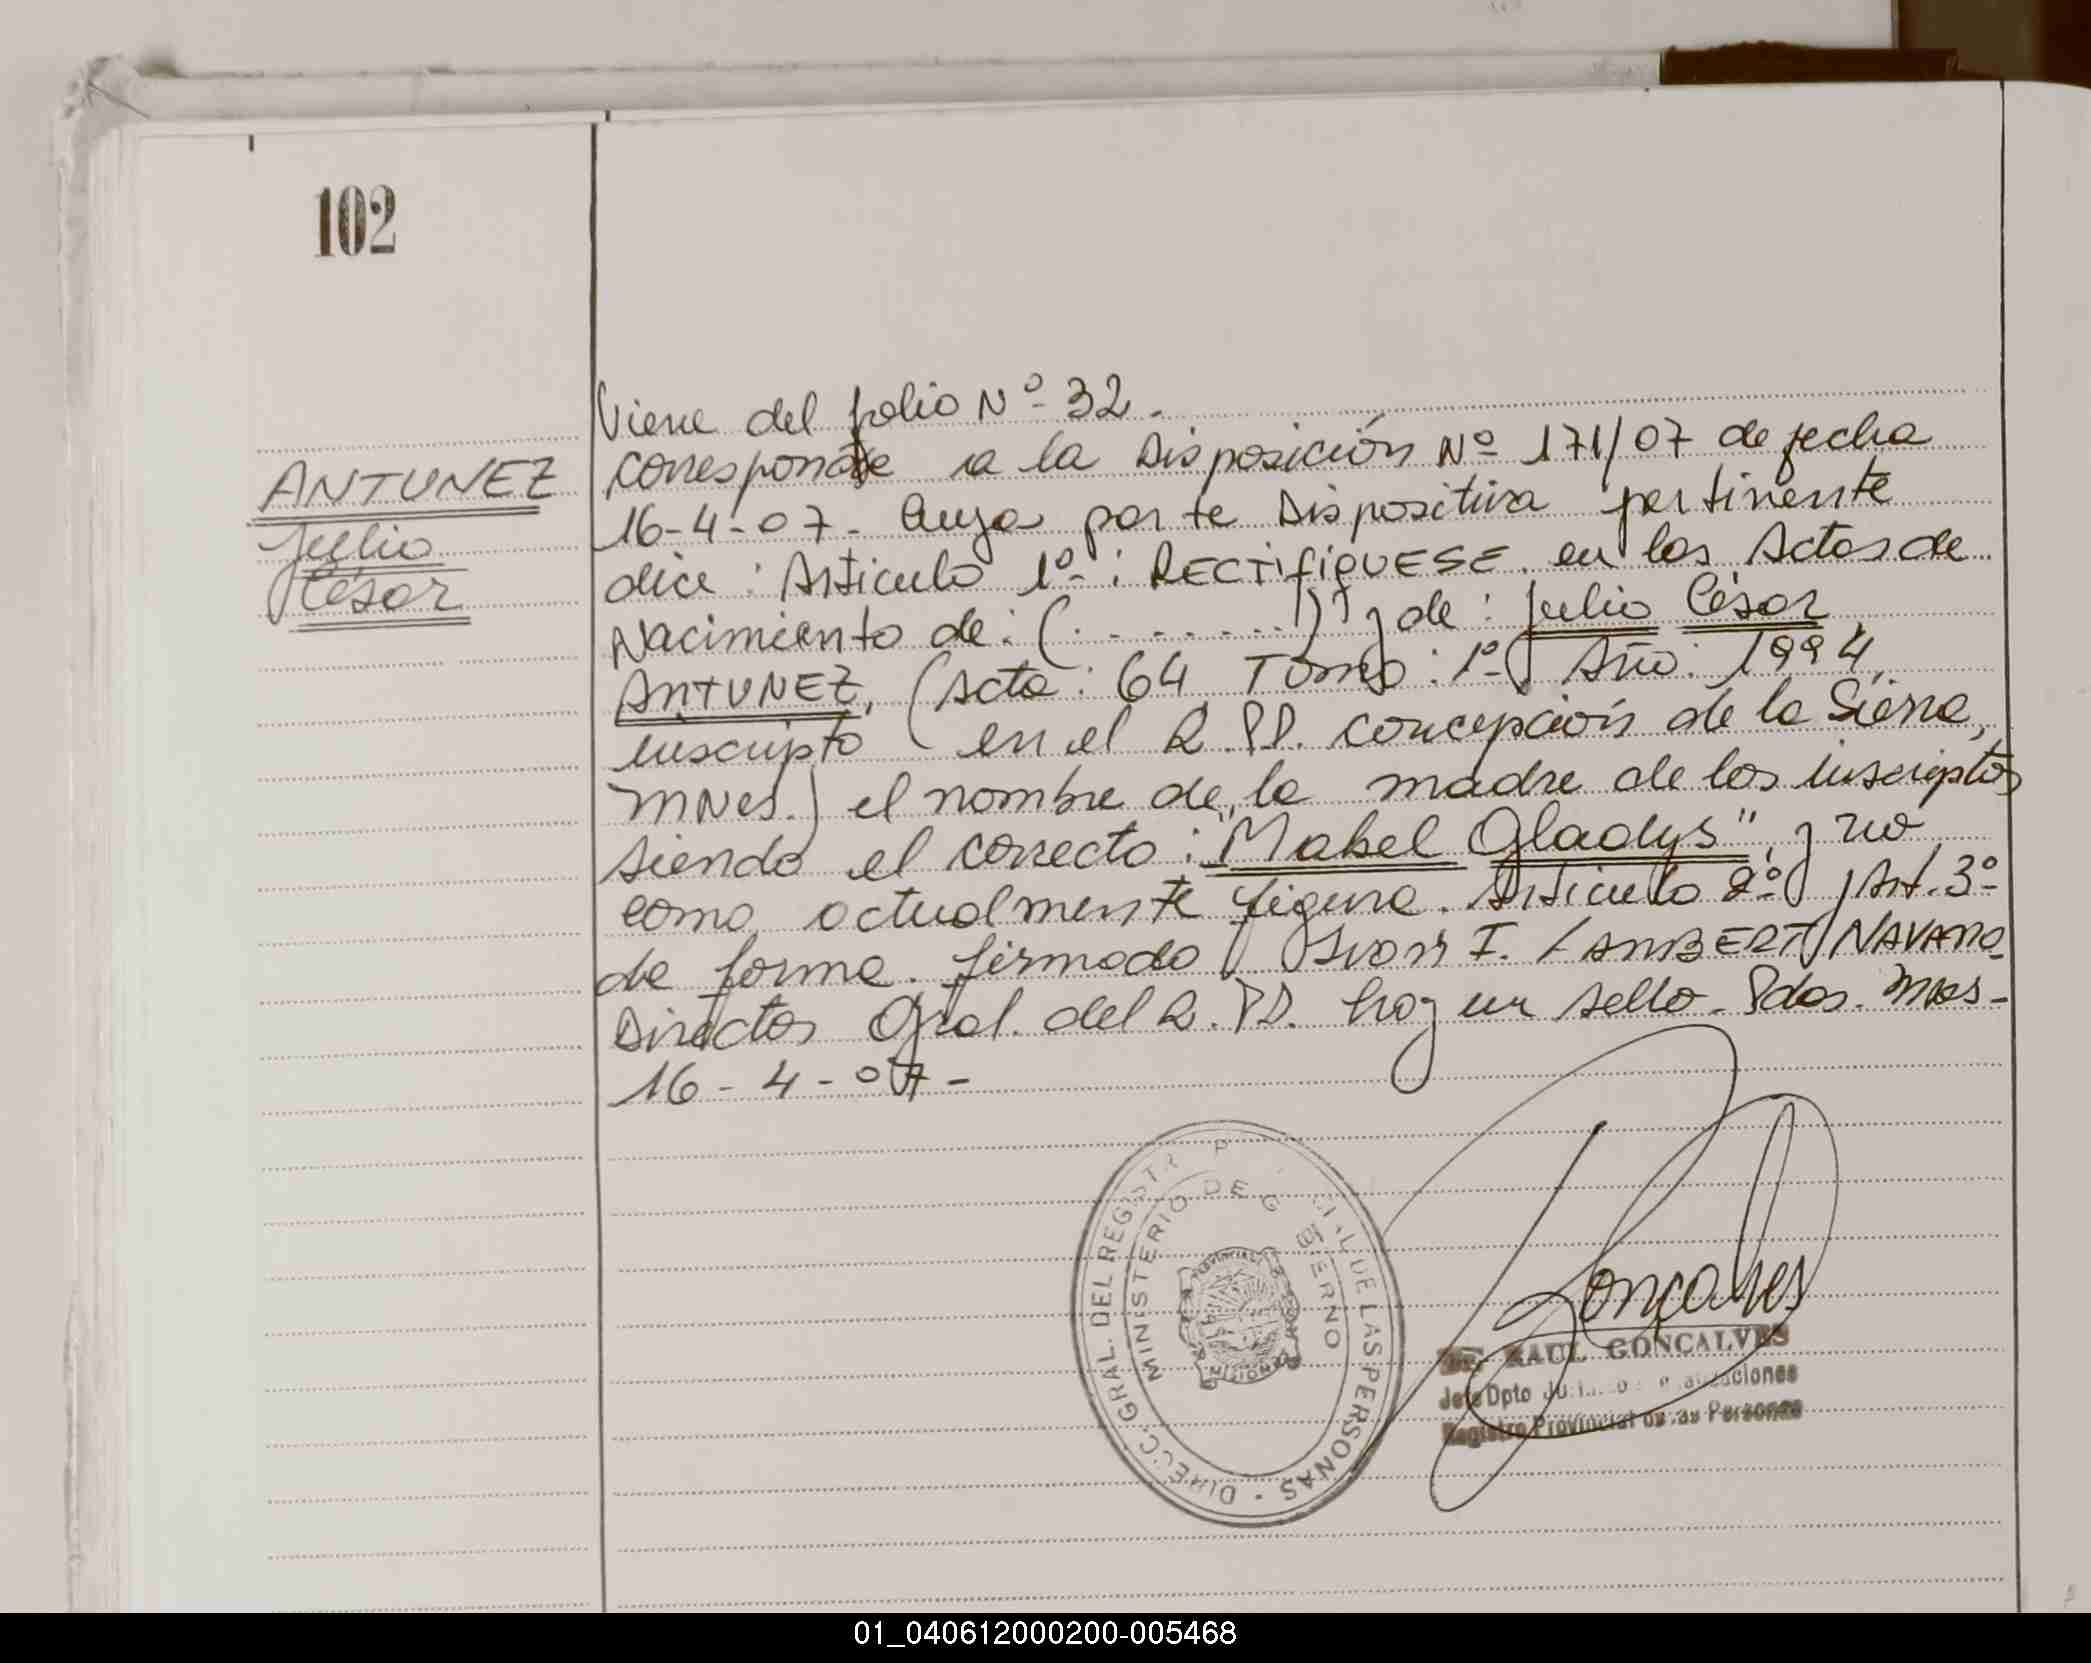 102
ANTUNEZ
Julio
César
Viene del folio Nº 32.
corresponde a la Disposición Nº 171/07 de fecha
16-4-07. Cuya parte Dispositiva pertinente
dice: Artículo 1º: RECTIFIQUESE en las Actas de
Nacimiento de: (. . . . . . . .) y de: Julio César
ANTUNEZ, (Acta: 64 Tomo: 1º Año: 1994
inscripto en el R.P.P. Concepción de la Sierra,
MNes.) el nombre de la madre de los inscriptos
siendo el correcto: "Mabel Gladys", y no
como actualmente figura. Artículo 2º y Art. 3º
de forma. Firmado Ivan I. LAMBERT NAVARRO
Director Gral. del R.P.P. hay un sello. Pdas. Mnes-
16-4-07-
DIRECC. GRAL. DEL REGISTR P IAL DE LAS PERSONAS
MINISTERIO DE G BIERNO
MISIONES
Gonçalves
RAUL GONCALVES
Jefe Dpto
Registro Provincial de las Personas
01_040612000200-005468